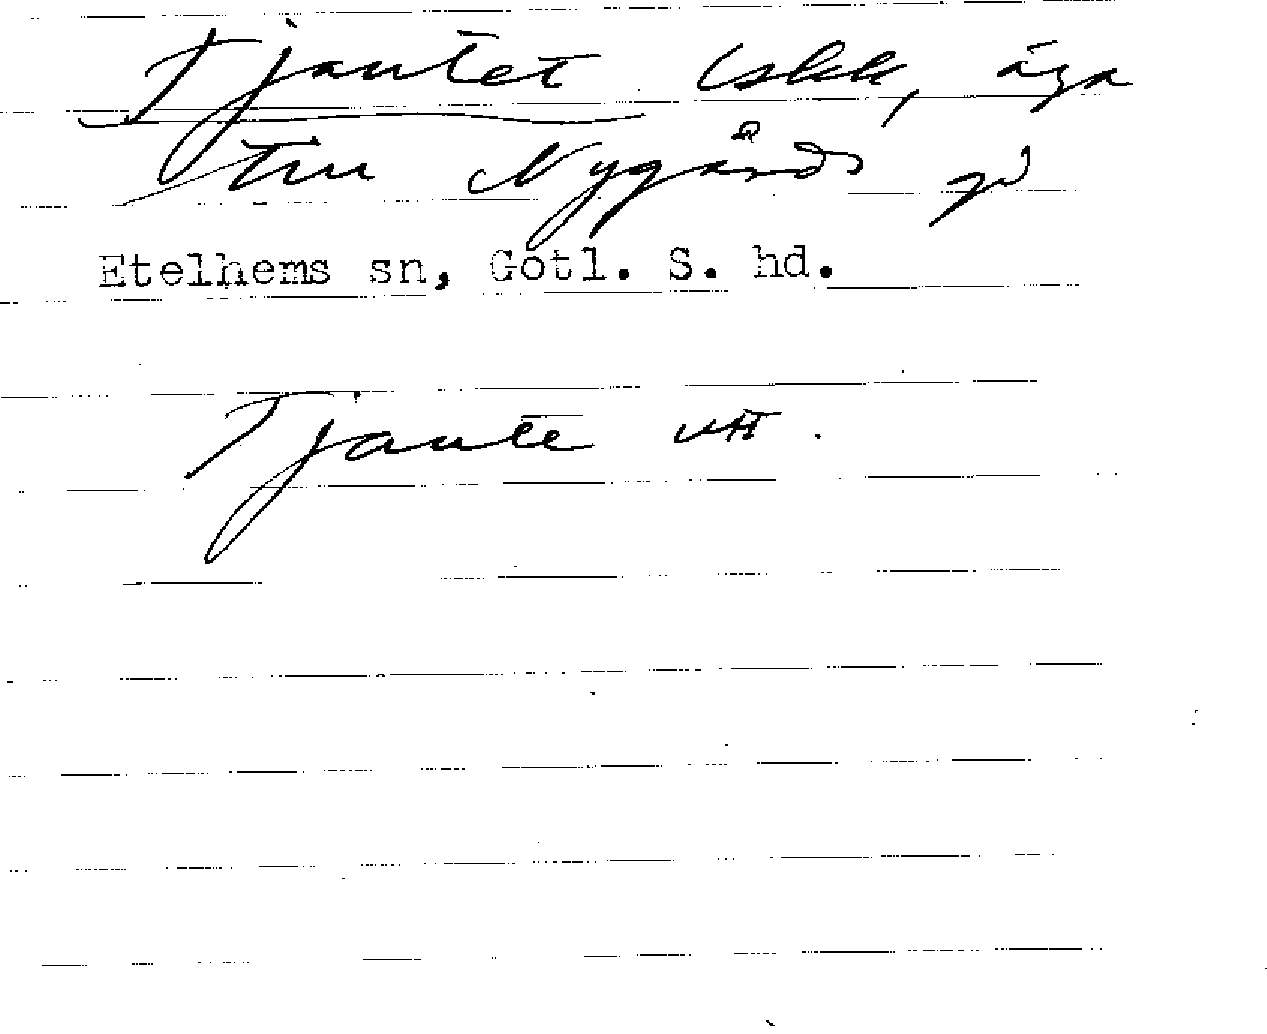 Tjautet Iskk, äga
till Nygårds gd
Etelhems sn, Gotl. S. hd.
Tjaute utt.